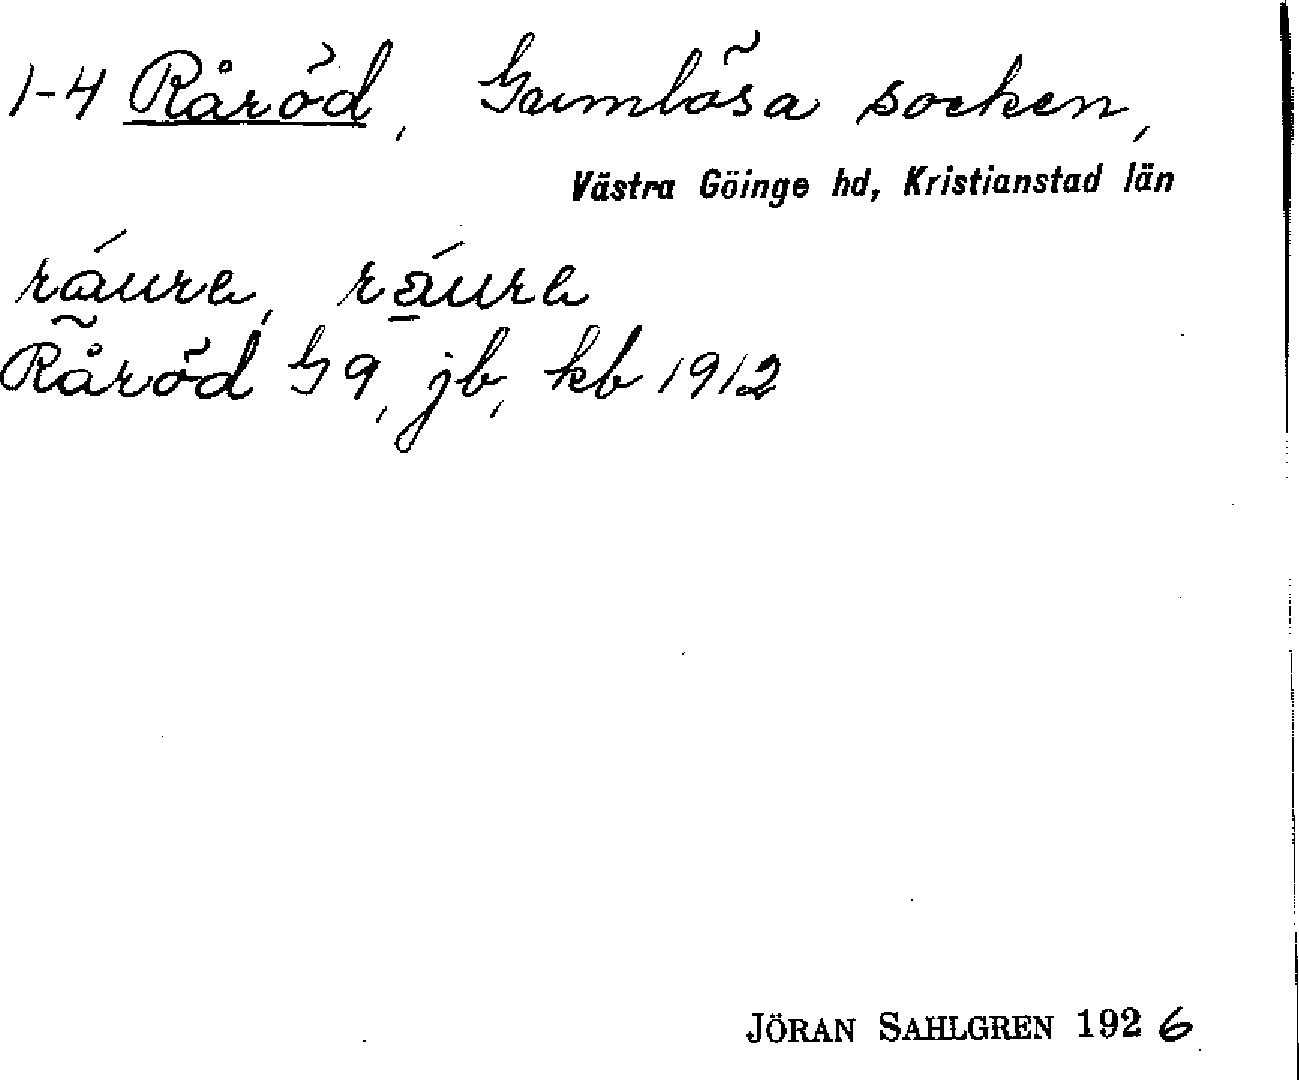 1-4 Råröd, Gumlösa socken,
Västra Göinge hd, Kristianstad län
ráure, ráure
Råröd G9, jb, kb 1912
JÖRAN SAHLGREN 1926